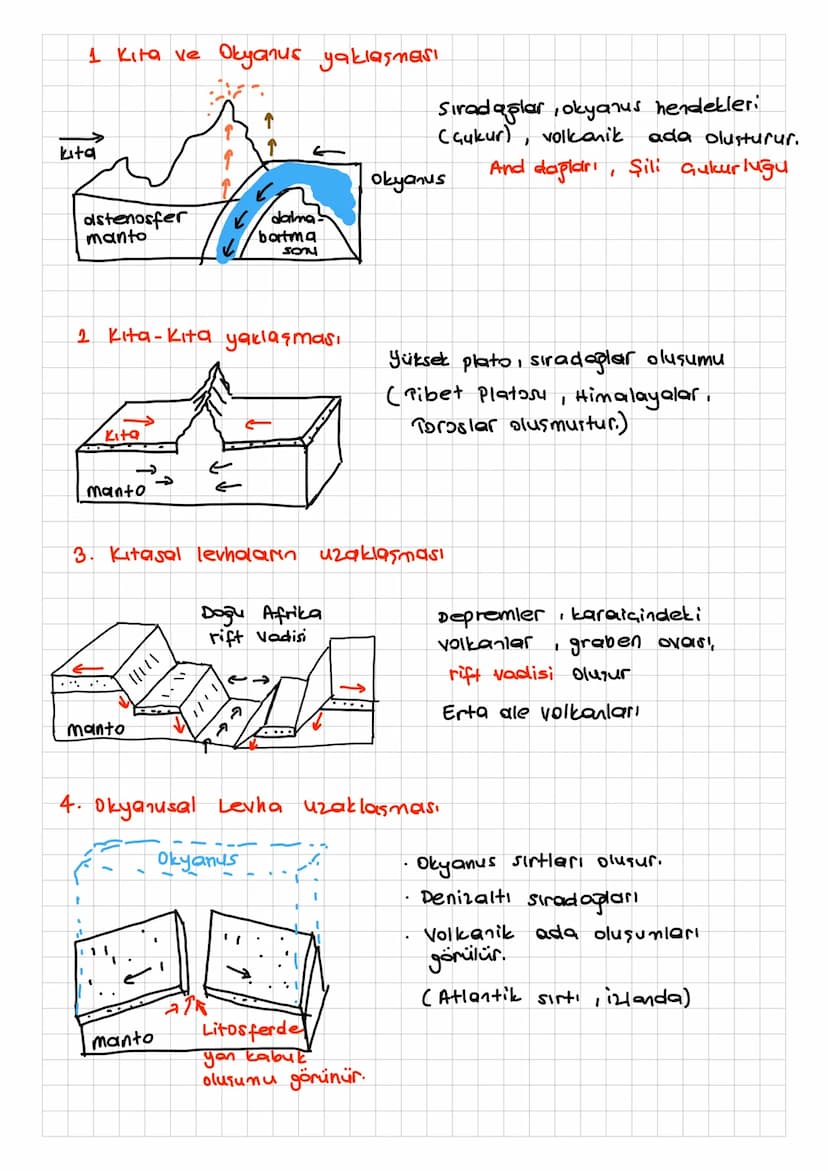 1 Kıta ve Okyanus yaklaşması
Sıradağlar, okyanus hendekleri
(Çukur), volkanik ada oluşturur.
And dağları, Şili Çukurluğu
kıta
Okyanus
astenosfer
manto
dalma-
bartma
sonu
2 Kıta-Kıta yaklaşması
Yüksek plato, sıradağlar oluşumu
(Tibet Platosu, Himalayalar,
Toroslar oluşmuştur.)
Kıta
manto
3. Kıtasal levhaların uzaklaşması
Doğu Afrika
rift Vadisi
Depremler, kara içindeki
volkanlar, graben ovası,
rift vadisi oluşur
Erta ale volkanları
manto
4. Okyanusal Levha uzaklaşması
Okyanus
· Okyanus sırtları oluşur.
· Denizaltı sıradağları
· Volkanik ada oluşumları
görülür.
(Atlantik sırtı, izlanda)
manto
Litosferde
yan kabuk
oluşumu görünür.